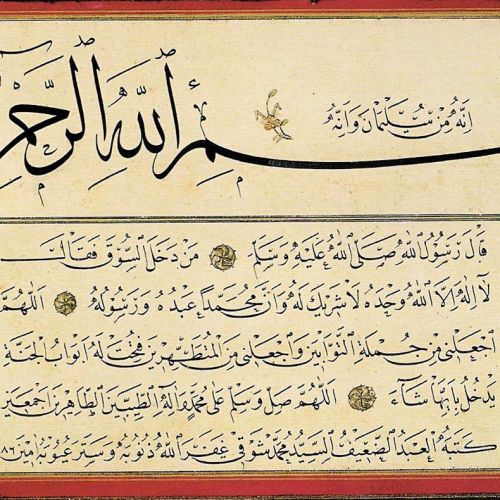 اِنَّهُ مِنْ سُلَيْمٰانَ وَاِنَّهُ
بسم اللّٰه الرَّحْمٰ
قَالَ رَسُولُ اللّٰهِ صَلَّى اللّٰهُ عَلَيْهِ وَسَلَّمَ مَنْ دَخَلَ السُّوقَ فَقَالَ
لَا اِلٰهَ اِلَّا اللّٰهُ وَحْدَهُ لَا شَرِيكَ لَهُ وَاَنَّ مُحَمَّداً عَبْدُهُ وَرَسُولُهُ اَللّٰهُمَّ
اجْعَلْنِى مِنْ جُمْلَةِ التَّوَّابِينَ وَاجْعَلْنِى مِنَ الْمُتَطَهِّرِينَ فُتِحَتْ لَهُ اَبْوَابُ الْجَنَّةِ
يَدْخُلُ بِاَيِّهَا شَاءَ اَللّٰهُمَّ صَلِّ وَسَلِّمْ عَلٰى مُحَمَّدٍ وَاٰلِهِ الطَّيِّبِينَ الطَّاهِرِينَ اَجْمَعِينَ
كَتَبَهُ الْعَبْدُ الضَّعِيفُ السَّيِّدُ مُحَمَّد شَوْقِى غَفَرَ اللّٰهُ ذُنُوبَهُ وَسَتَرَ عُيُوبَهُ اٰمِينَ